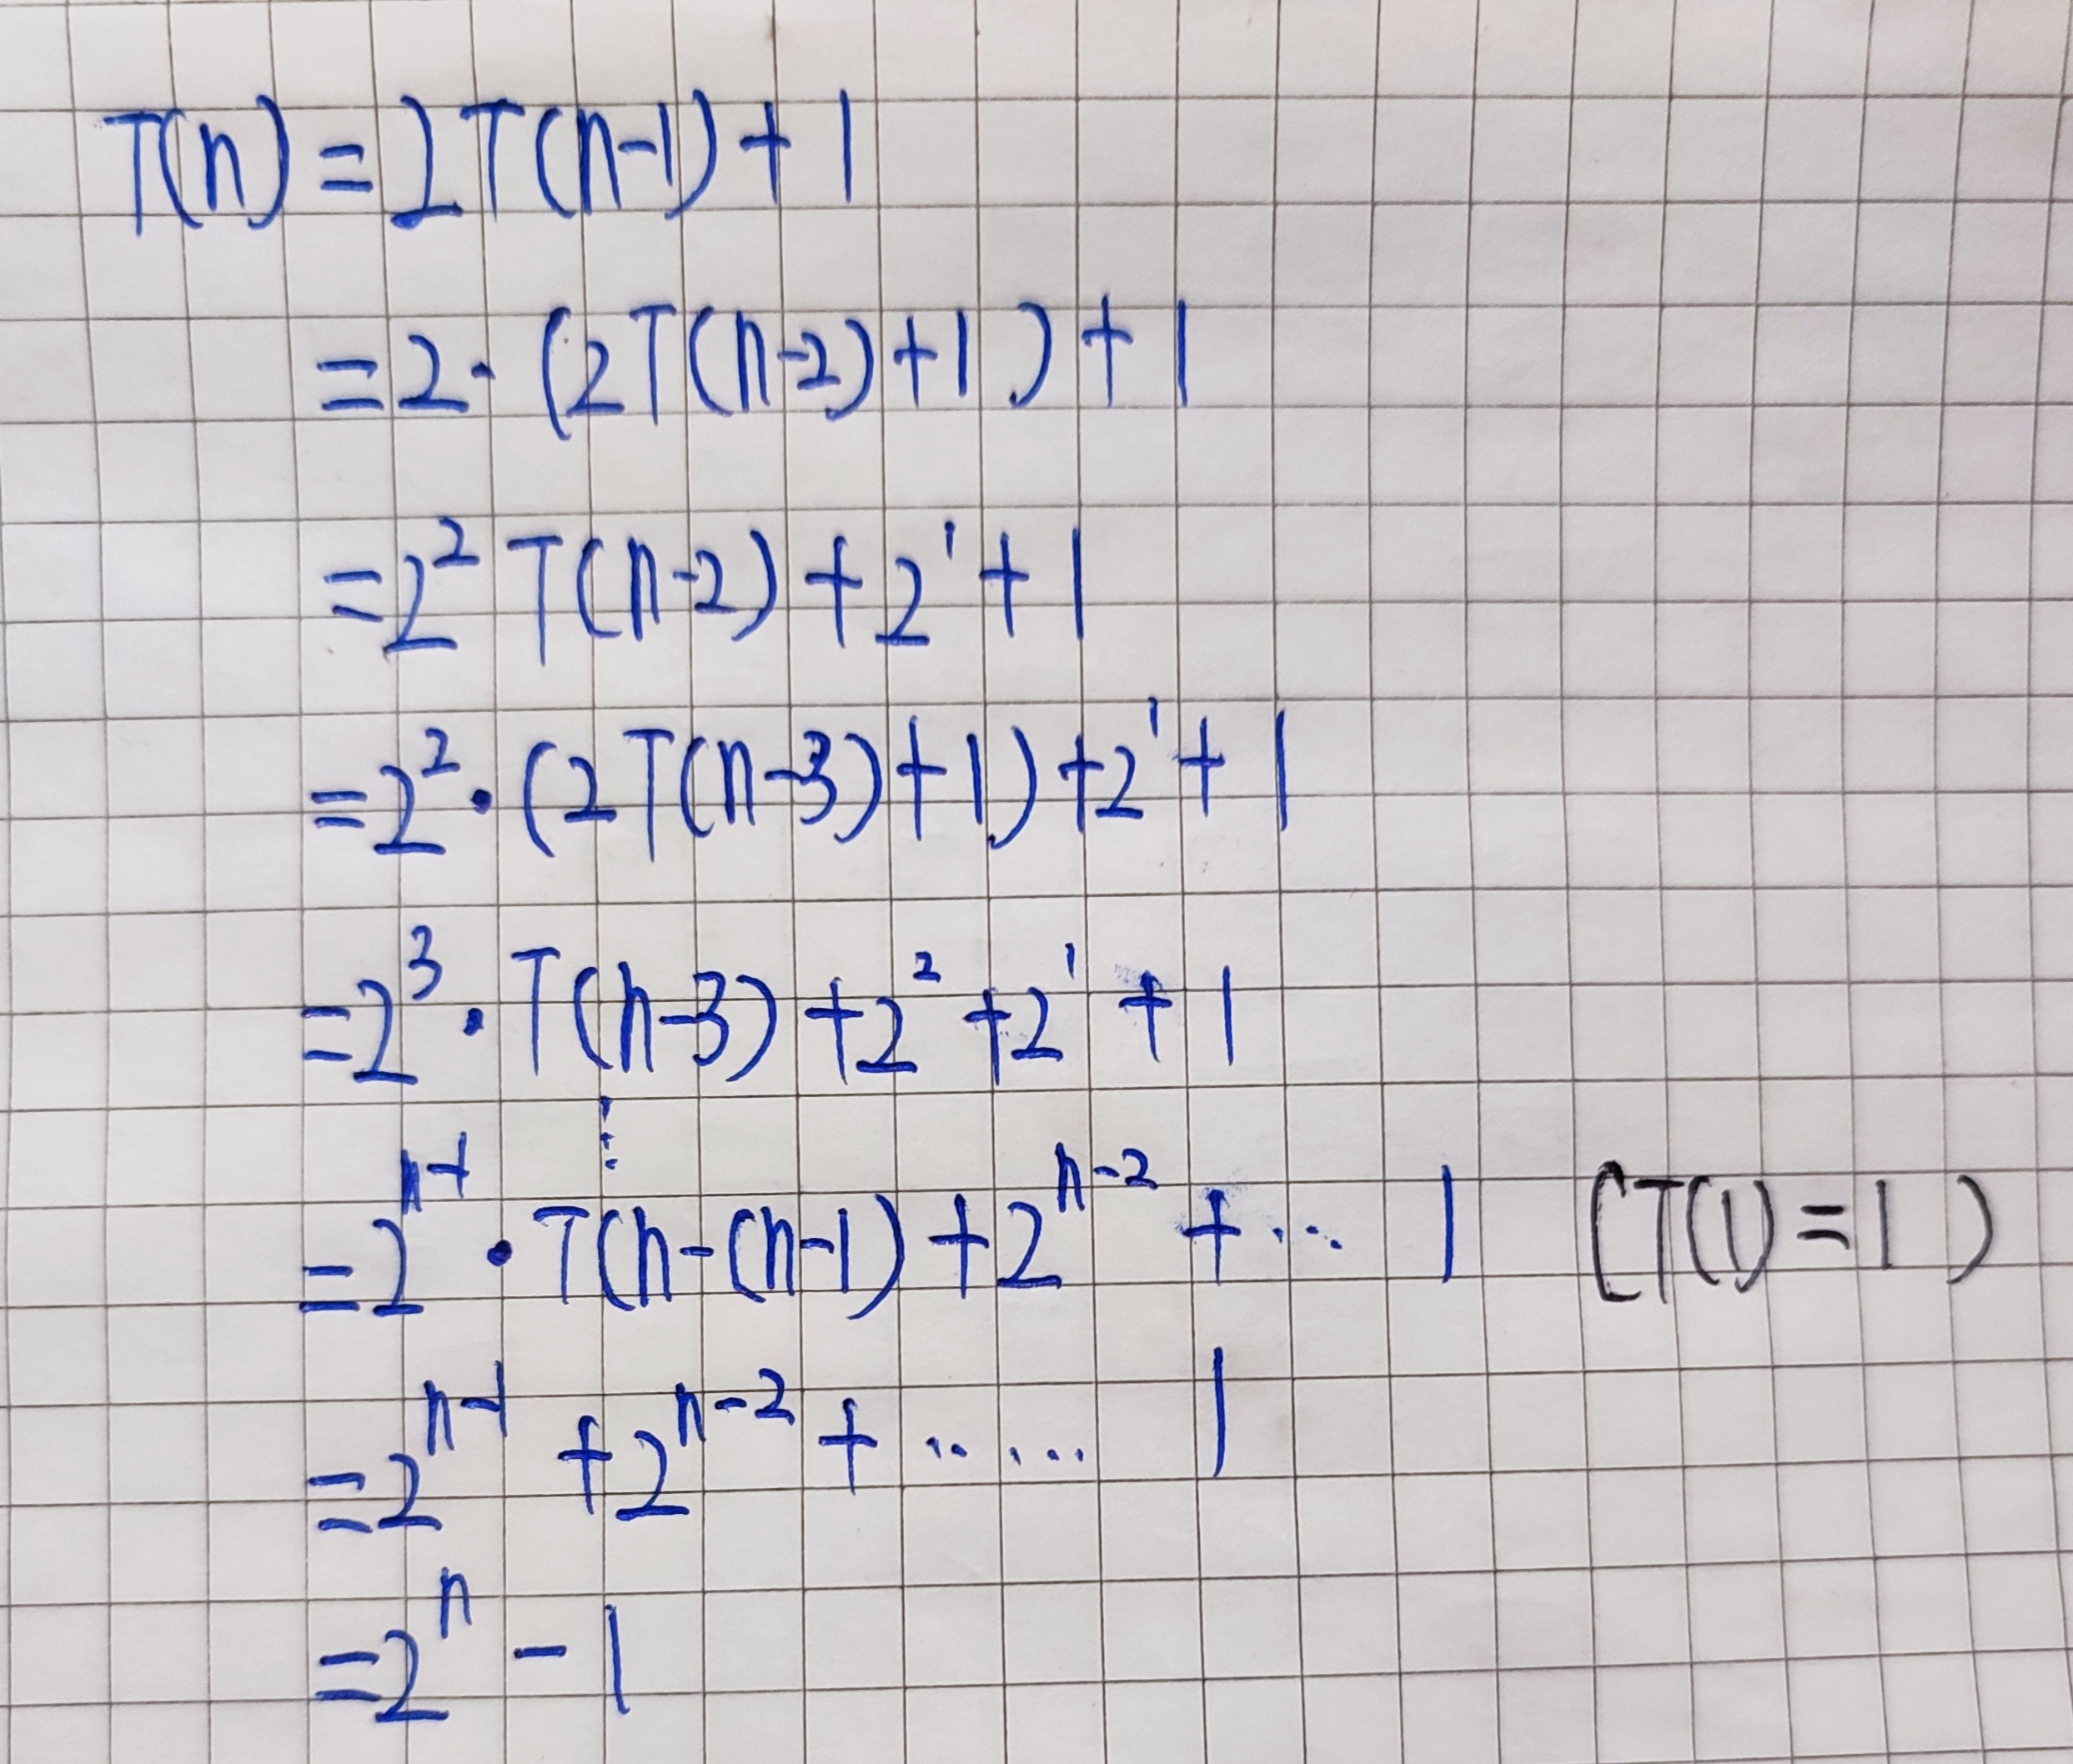 T(n) = 2T(n-1) + 1
= 2 · (2T(n-2) + 1) + 1
= 2² T(n-2) + 2¹ + 1
= 2² · (2T(n-3) + 1) + 2¹ + 1
= 2³ · T(n-3) + 2² + 2¹ + 1
⋮
= 2ⁿ⁻¹ · T(n-(n-1) + 2ⁿ⁻² + ... 1 (T(1) = 1)
= 2ⁿ⁻¹ + 2ⁿ⁻² + ...... 1
= 2ⁿ - 1